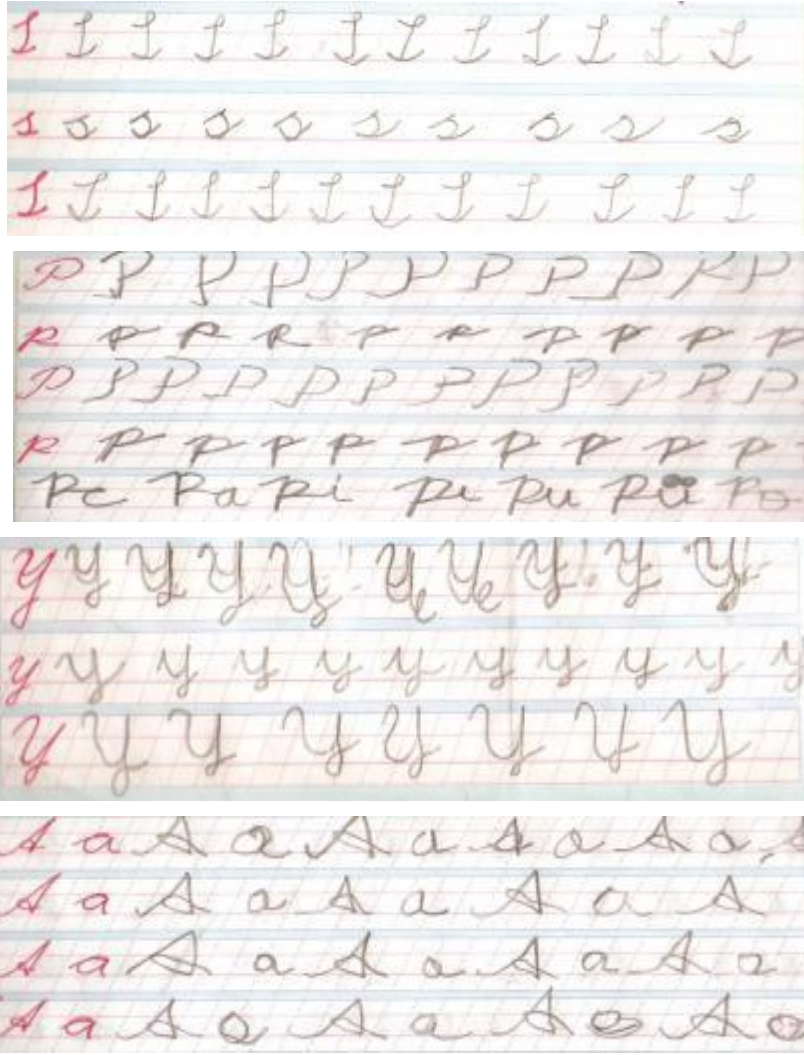 S S S S S S S S S S S S
s s s s s s s s s s
S S S S S S S S S S S S
P P P P P P P P P P P
p p p p p p p p p p
P P P P P P P P P P P P
p p p p p p p p p p
Pe Pa Pi Pı Pu Pü Po
Y Y Y Y Y Ye Ye Y Y Y
y y y y y y y y y y y
Y Y Y Y Y Y Y Y
A a A a A a A a A a
A a A a A a A a A
A a A a A a A a A a
A a A a A a A a A a